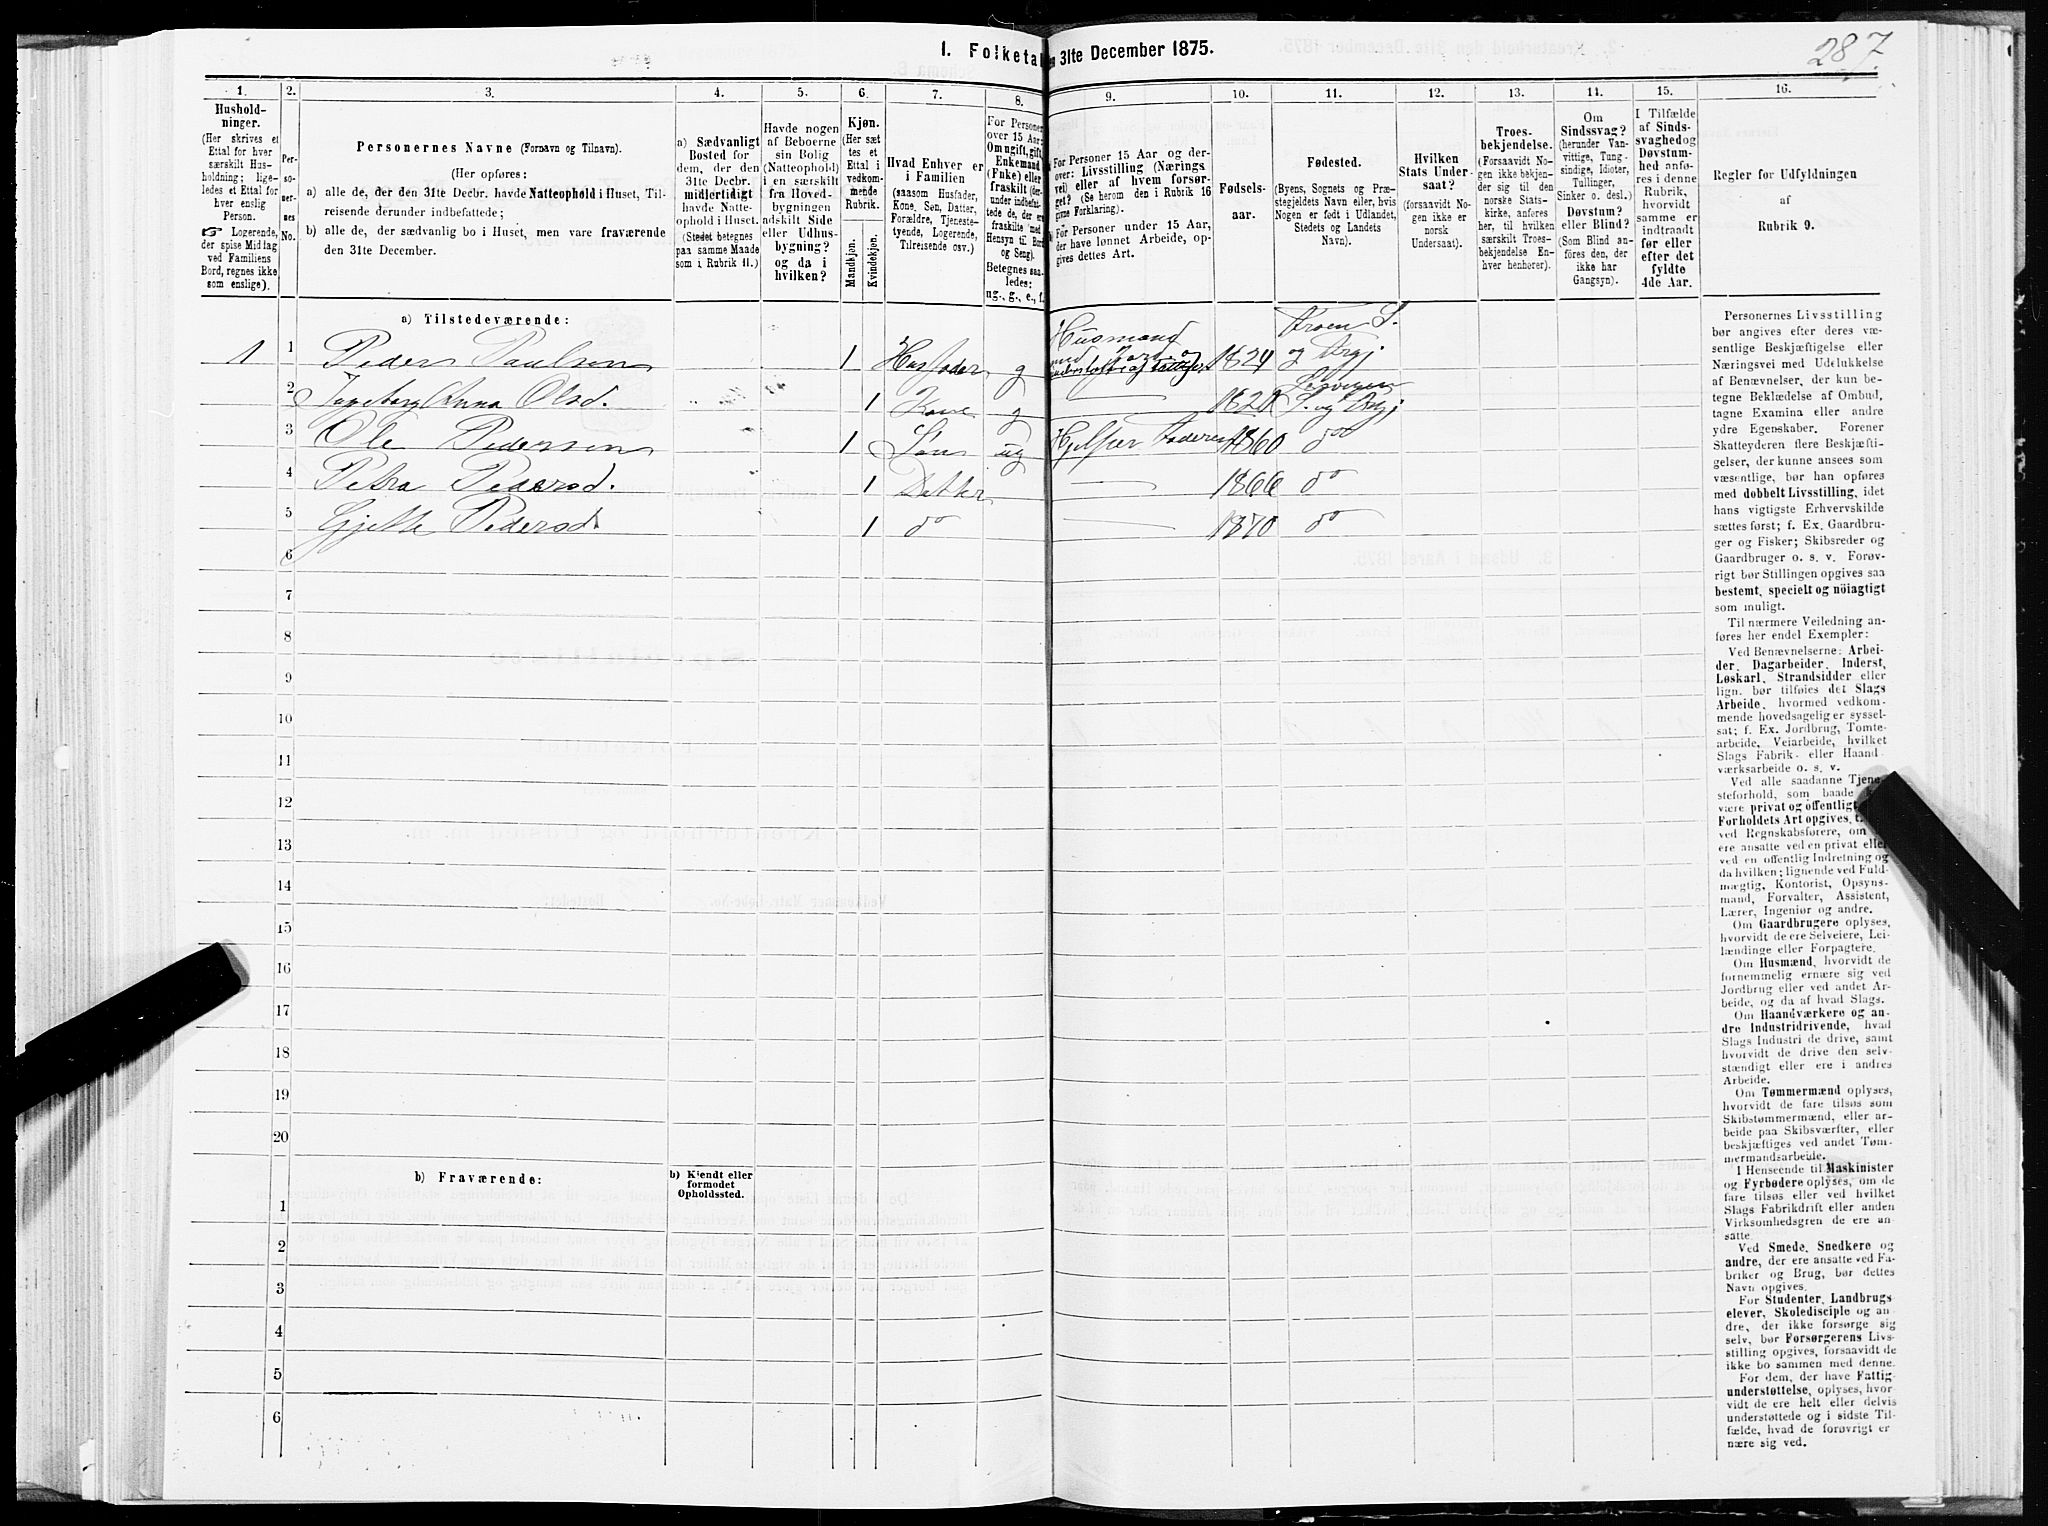 1. Folketal
en 31te December 1875.
287.
1.
Hushold-
ninger.
(Her skrives et
Ettal for hver
særskilt Hus-
holdning; lige-
ledes et Ettal for
hver enslig
Person.
☞ Logerende,
der spise Middag
ved Familiens
Bord, regnes ikke
som enslige).
2.
Per-
so-
ner-
nes
No.
3.
Personernes Navne (Fornavn og Tilnavn).
(Her opføres:
a) alle de, der den 31te Decbr. havde Natteophold i Huset, Til-
reisende derunder indbefattede;
b) alle de, der sædvanlig bo i Huset, men vare fraværende
den 31te December.
4.
a) Sædvanligt
Bosted for
dem, der den
31te Decbr.
midlertidigt
havde Natte-
ophold i Huset.
(Stedet betegnes
paa samme Maade
som i Rubrik 11.)
5.
Havde nogen
af Beboerne
sin Bolig
(Natteophold)
i en særskilt
fra Hoved-
bygningen
adskilt Side
eller Udhus-
bygning?
og da i
hvilken?
6.
Kjøn.
(Her sæt-
tes et
Ettal i
vedkom-
mende
Rubrik.
Mandkjøn.
Kvindekjøn.
7.
Hvad Enhver er
i Familien
(saasom Husfader,
Kone, Søn, Datter,
Forældre, Tjeneste-
tyende, Logerende,
Tilreisende osv.)
8.
For Personer
over 15 Aar:
Om ugift, gift,
Enkemand
(Enke) eller
fraskilt (der-
under indbefat-
tede de, der ere
fraskilte med
Hensyn til Bord
og Seng).
Betegnes saa-
ledes:
ug., g., e., f.
9.
For Personer 15 Aar og der-
over: Livsstilling (Nærings-
vei) eller af hvem forsør-
get? (Se herom den i Rubrik 16
givne Forklaring).
For Personer under 15 Aar,
der have lønnet Arbeide, op-
gives dettes Art.
10.
Fødsels-
aar.
11.
Fødested.
(Byens, Sognets og Præ-
stegjeldets Navn, eller, hvis
Nogen er født i Udlandet,
Stedets og Landets
Navn).
12.
Hvilken
Stats Under-
saat?
(forsaavidt No-
gen ikke er
norsk
Undersaat).
13.
Troes-
bekjendelse.
(Forsaavidt No-
gen ikke bekjen-
der sig til den
norske Stats-
kirke, anføres
her, til hvilken
særskilt Troes-
bekjendelse En-
hver henhører).
14.
Om
Sindssvag?
(herunder Van-
vittige, Tung-
sindige, Idioter,
Tullinger,
Sinker o. desl.)
Døvstum?
eller Blind?
(Som Blind an-
føres den, der
ikke har
Gangsyn).
15.
I Tilfælde
af Sinds-
svaghed og
Døvstum-
hed anfø-
res i denne
Rubrik,
hvorvidt
samme er
indtraadt
før eller
efter det
fyldte
4de Aar.
16.
Regler for Udfyldningen
af
Rubrik 9.
a) Tilstedeværende:
1 1 Peder Paulsen 1 Husfader g Husmand med Jord 1824 Troen S. og
2 Ingeborg Anna Olsd. 1 Kone g S. og
3 Ole Pedersen 1 Søn ug Hjelper Faderen 1860 do
4 Petra Pedersd. 1 Datter 1866 do
5 Gjette Pedersd. 1 do 1870 do
6
7
8
9
10
11
12
13
14
15
16
17
18
19
20
b) Fraværende:
b) Kjendt eller
formodet
Opholdssted.
1
2
3
4
5
6
Personernes Livsstilling
bør angives efter deres væ-
sentlige Beskjæftigelse eller
Næringsvei med Udelukkelse
af Benævnelser, der kun be-
tegne Beklædelse af Ombud,
tagne Examina eller andre
ydre Egenskaber. Forener
Skatteyderen flere Beskjæfti-
gelser, der kunne ansees som
væsentlige, bør han opføres
med dobbelt Livsstilling, idet
hans vigtigste Erhvervskilde
sættes først; f. Ex. Gaardbru-
ger og Fisker; Skibsreder og
Gaardbruger o. s. v. Forøv-
rigt bør Stillingen opgives saa
bestemt, specielt og nöiagtigt
som muligt.
Til nærmere Veiledning an-
føres her endel Exempler:
Ved Benævnelserne: Arbei-
der, Dagarbeider, Inderst,
Løskarl, Strandsidder eller
lign. bør tilføies det Slags
Arbeide, hvormed vedkom-
mende hovedsagelig er syssel-
sat; f. Ex. Jordbrug, Tomte-
arbeide, Veiarbeide, hvilket
Slags Fabrik- eller Haand-
værksarbeide o. s. v.
Ved alle saadanne Tjene-
steforhold, som baade
være privat og offentligt
Forholdets Art opgives,
ved Regnskabsførere, om
ere ansatte ved en privat eller
ved en offentlig Indretning og
da hvilken; lignende ved Fuld-
mægtig, Kontorist, Opsyns-
mand, Forvalter, Assistent,
Lærer, Ingeniør og andre.
Om Gaardbrugere oplyses,
hvorvidt de ere Selveiere, Lei-
lændinge eller Forpagtere.
Om Husmænd, hvorvidt de
fornemmelig ernære sig ved
Jordbrug eller ved andet Ar-
beide, og da af hvad Slags.
Om Haandværkere og an-
dre Industridrivende, hvad
Slags Industri de drive, samt
hvorvidt de drive den selv-
stændigt eller ere i andres
Arbeide.
Om Tømmermænd oplyses,
hvorvidt de fare tilsøs som
Skibstømmermænd, eller ar-
beide paa Skibsværfter, eller
beskjæftiges ved andet Tøm-
mermandsarbeide.
I Henseende til Maskinister
og Fyrbødere oplyses, om de
fare tilsøs eller ved hvilket
Slags Fabrikdrift eller anden
Virksomhedsgren de ere an-
satte.
Ved Smede, Snedkere og
andre, der ere ansatte ved Fa-
briker og Brug, bør dettes
Navn opgives.
For Studenter, Landbrugs-
elever, Skoledisciple og an-
dre, der ikke forsørge sig
selv, bør Forsørgerens Livs-
stilling opgives, forsaavidt de
ikke bo sammen med denne.
For dem, der have Fattig-
understøttelse, oplyses, hvor-
vidt de ere helt eller delvis
understøttede og i sidste Til-
fælde, hvad de forøvrigt er
nære sig ved.